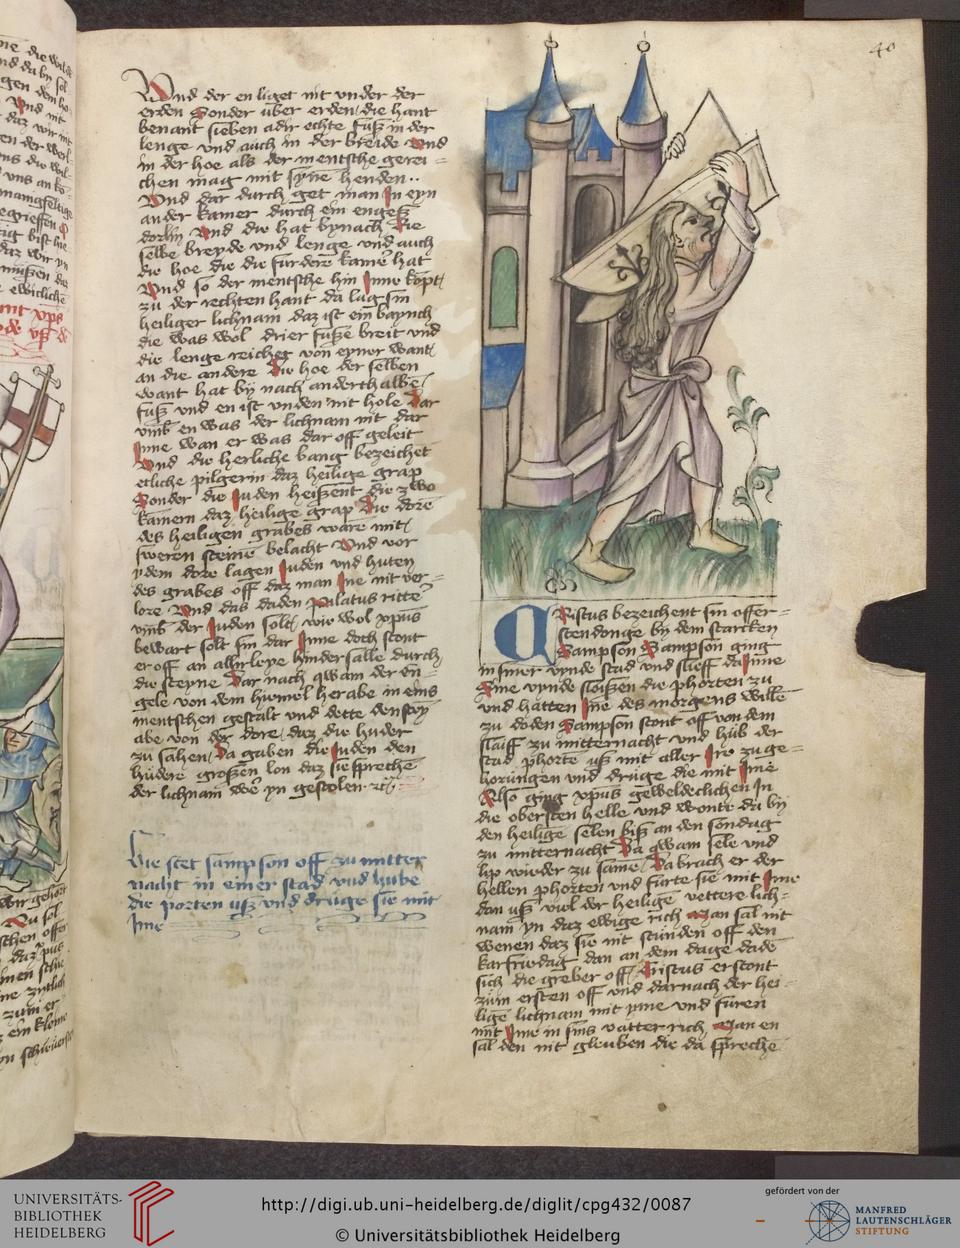 40
Vnd der en liget nit vnder der
erden Sonder uber erden die hant
benant sieben adir echte fusz in der
lenge vnd auch in der breide vnd
in der hoe als der mentsche gerei=
chen mag mit syne henden..
Vnd dar durch get man In eyn
ander kamer durch ein engesz
dorlin Vnd die hat bynach die
selbe breyde vnd lenge vnd auch
die hoe die die furder kamer hat
Vnd so der mentsche hin Inne kopt
zu der rechten hant da lag sin
heiliger lichnam daz ist ein baynch
die was wol drier fusze breit vnd
die lenge reichet von eyner want
an die andere Die hoe der selben
want hat bij nach anderthalbe
fusz vnd en ist vnden nit hole Dar
vmb en was der lichnam nit dar
Inne wan er was dar off geleit
Vnd die herliche bang bezeichet
etliche pilgerin daz heilige grap
Sonder die Juden heiszent die zwo
kamern daz heilige grap Die dore
des heiligen grabes ware mit
sweren steine belacht Vnd vor
dem dore lagen Juden vnd huten
des grabes off daz man Ine nit ver=
lore Vnd das daden pylatus ritter
vmb der Juden solt wie wol xpus
bewart solt sin dar Inne doch stont
er off an allirleye hindersalle durch
die steyne Dar nach qwam der en=
gele von dem hiemel herabe in eins
mentschen gestalt vnd dette den steyn
abe von der dore daz die huder
zu sahen Da gaben die Juden den
hudere groszen lon daz sie spreche
der lichnam were yn gestolen
Hie stet sampson off zu mitter
nacht in einer stad vnd hube
die porten usz vnd druge sie mit
Ime
Cristus bezeichent sin offer=
stendonge by dem starcken
Sampson Sampson ging
in siner vynde stad vnd slieff da Inne
Sine vynde sloiszen die phorten zu
vnd hatten Ine des morgens wille
zu doden Sampson stont off von dem
slaiff zu mitternacht vnd hub der
stad phorte usz mit aller Ire zu ge=
horungen vnd druge die mit Ime
Also ging xpus geweldeclichen In
die obersten helle vnd wonte da by
den heilige selen bisz an den sondag
zu mitternacht Da qwam sele vnd
lip wieder zu same Da brach er der
hellen phorten vnd furte sie mit Ime
dan usz viel der heilige vettere lich=
nam yn daz ewige rich Man sal nit
wenen daz sie nit stunden off den
karfriedag dan an dem dage dade
sich die greber off Cristus erstont
zum ersten off vnd darnach der hei=
lige lichnam mit yme vnd furen
mit Ime in sins vatter rich Man en
sal den nit gleuben die da spreche
UNIVERSITÄTS-
BIBLIOTHEK
HEIDELBERG
http://digi.ub.uni-heidelberg.de/diglit/cpg432/0087
© Universitätsbibliothek Heidelberg
gefördert von der
MANFRED
LAUTENSCHLÄGER
STIFTUNG